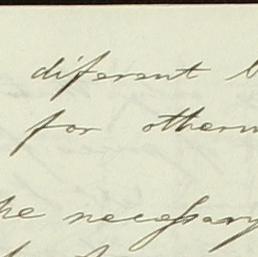 diferent b
for otherw
he necessary